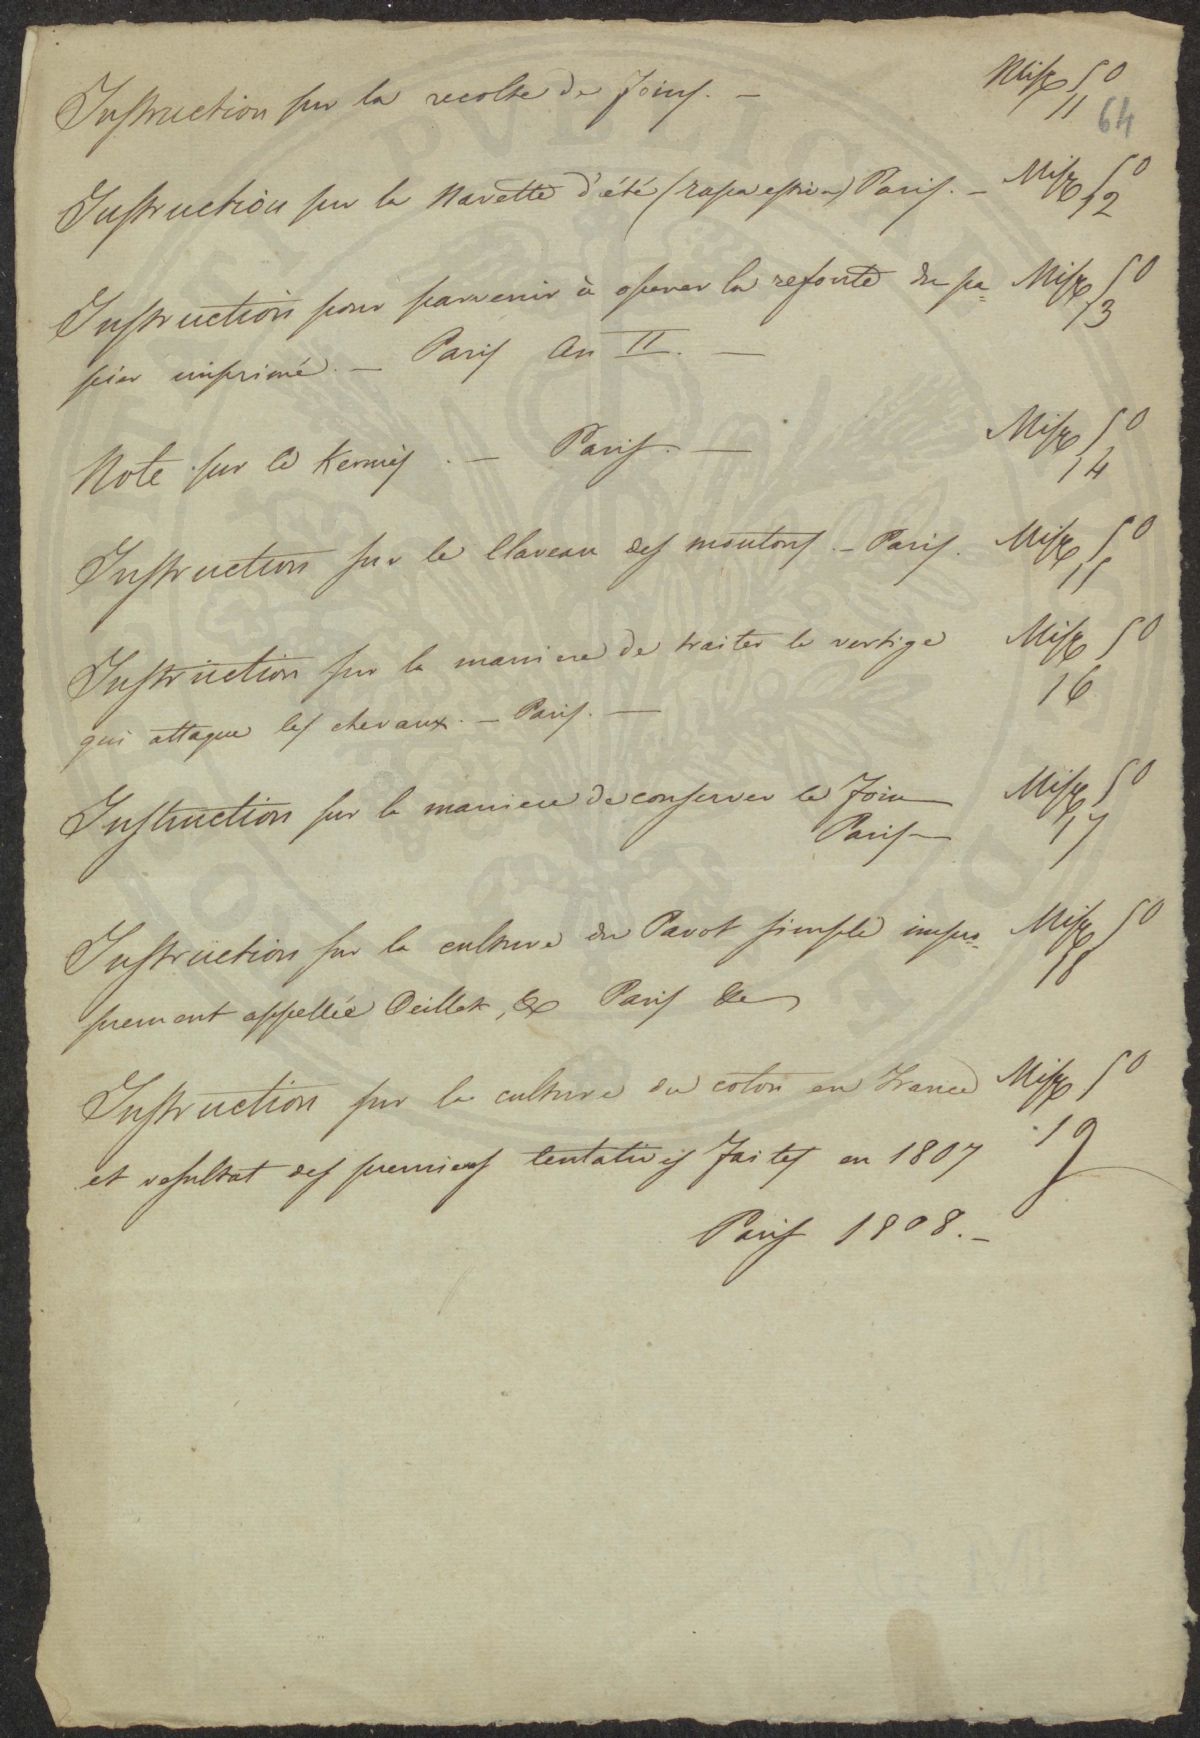 Instruction sur la recolte de foins. — Misc 50
11
64
Instruction sur la Navette d'été (rapa ) Paris. — Misc 50
12
Instruction pour parvenir à operer la refonte du pa= Misc 50
13
pier imprimé. — Paris An II. —
Note sur le Kermès . — Paris. — Misc 50
14
Instruction sur le Claveau des moutons. — Paris. Misc 50
15
Instruction sur la maniere de traiter le vertige Misc 50
16
qui attaque les chevaux. — Paris. —
Instruction sur la maniere de conserver le foin Misc 50
Paris — 17
Instruction sur la culture du Pavot simple impro= Misc 50
18
prement appellée Oeillet, & Paris &c
Instruction sur la culture du coton en France Misc 50
19
et resultat des premieres tentatives faites en 1807
Paris 1808. —